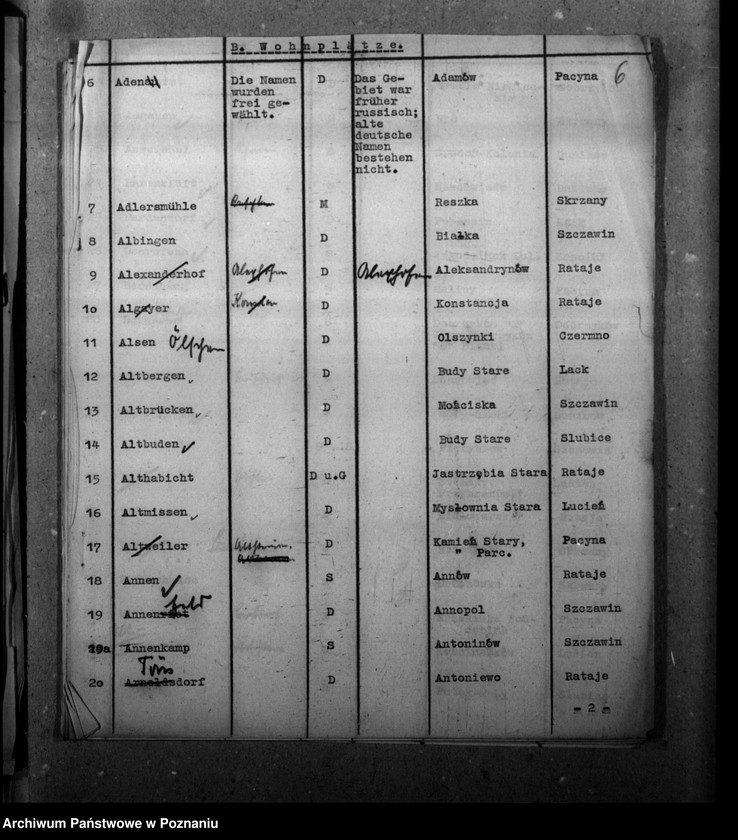 B. Wohnplätze.
6
6 Adenau Die Namen wurden frei gewählt. D Das Ge-
biet war
früher
russisch;
alte
deutsche
Namen
bestehen
nicht. Adamów Pacyna
7 Adlersmühle M Reszka Skrzany
8 Albingen D Białka Szczawin
9 Alexanderhof D Aleksandrynów Rataje
10 Algayer D Konstancja Rataje
11 Alsen D Olszynki Czermno
12 Altbergen D Budy Stare Lack
13 Altbrücken D Mościska Szczawin
14 Altbuden D Budy Stare Slubice
15 Althabicht D u.G Jastrzębia Stara Rataje
16 Altmissen D Mysłownia Stara Lucień
17 Altweiler D Kamień Stary, Pacyna
" Parc.
18 Annen S Annów Rataje
feld
19 Annen D Annopol Szczawin
19a Annenkamp S Antoninów Szczawin
20 Arnoldsdorf D Antoniewo Rataje
- 2 -
Archiwum Państwowe w Poznaniu